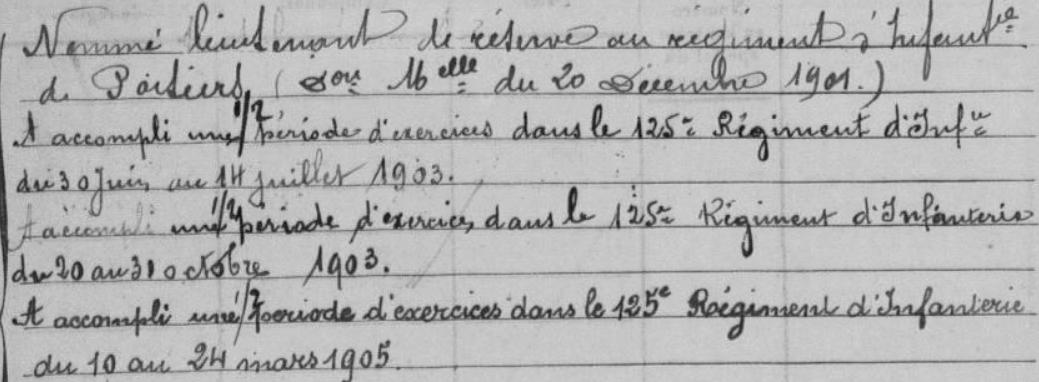 Nommé lieutenant de réserve au régiment d'Infantie
de Poitiers (Son Melle du 20 Décembre 1901.)
A accompli une 1/2 période d'exercices dans le 125e Régiment d'Infie
du 30 Juin au 14 juillet 1903.
A accompli une 1/2 période d'exercices dans le 125e Régiment d'Infanterie
du 20 au 31 octobre 1903.
A accompli une 1/2 période d'exercices dans le 125e Régiment d'Infanterie
du 10 au 24 mars 1905.